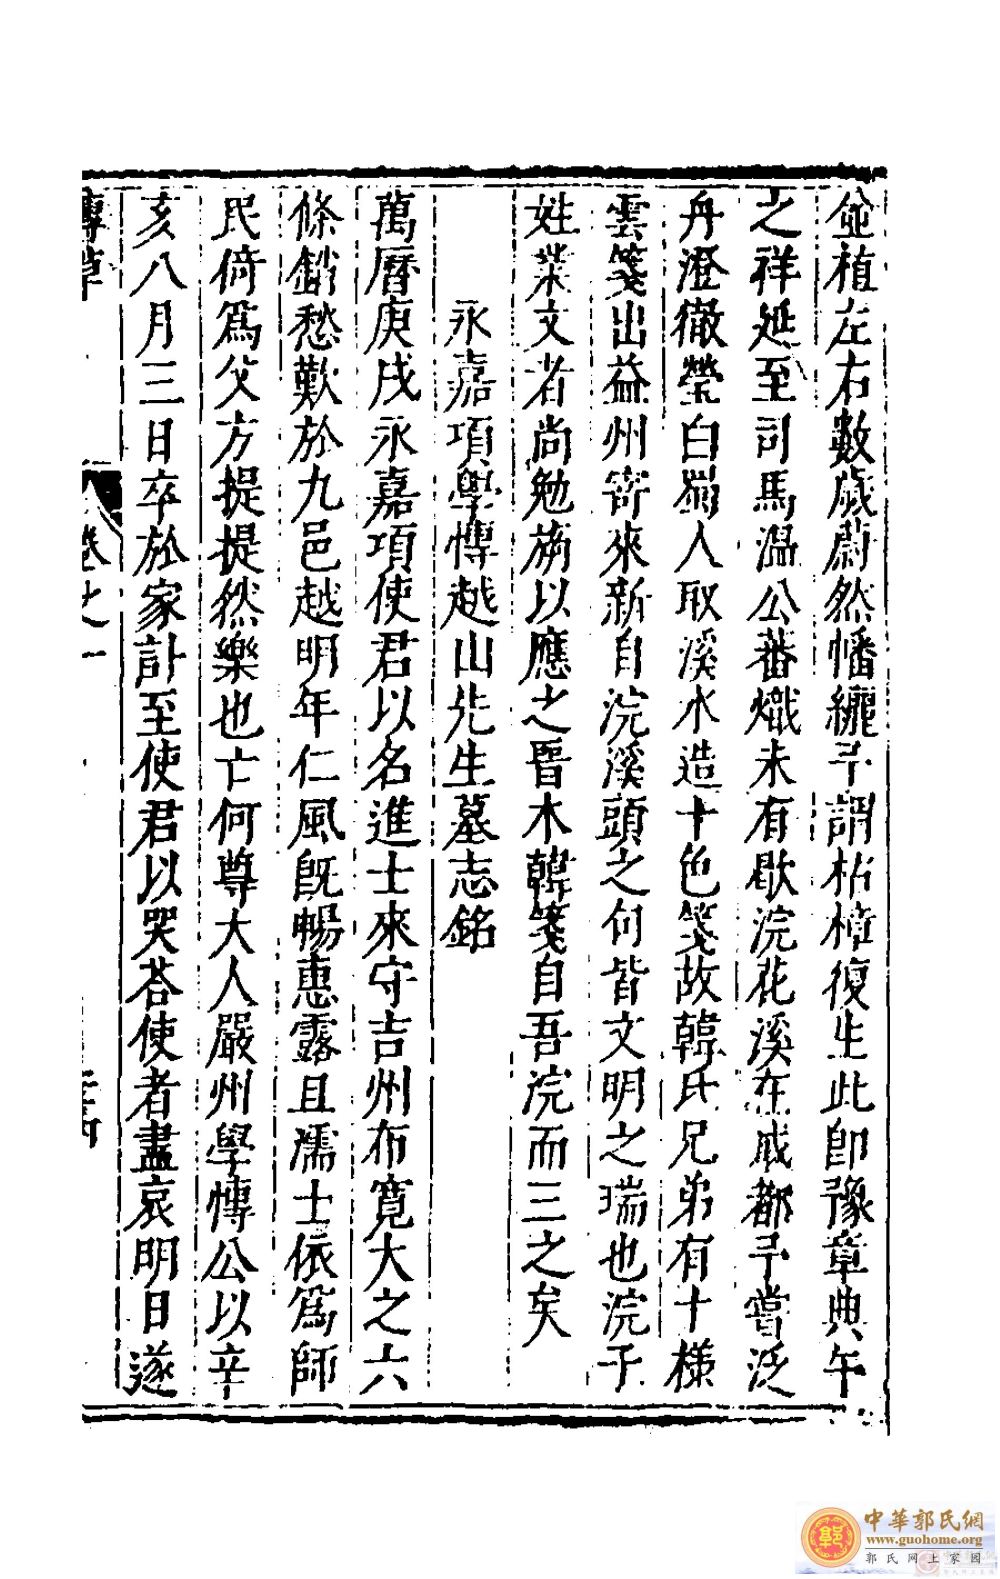 並植左右數歲蔚然幡纚予謂枯樟復生此卽豫章典午
之祥延至司馬溫公蕃熾未有歇浣花溪在成都予嘗泛
舟澄徹瑩白蜀人取溪水造十色箋故韓氏兄弟有十樣
雲箋出益州寄來新自浣溪頭之句皆文明之瑞也浣子
姓業文者尚勉旃以應之晉木韓箋自吾浣而三之矣
永嘉項學博越山先生墓志銘
萬曆庚戌永嘉項使君以名進士來守吉州布寬大之六
條銷愁歎於九邑越明年仁風旣暢惠露且濡士依爲師
民倚爲父方提提然樂也亡何尊大人嚴州學博公以辛
亥八月三日卒於家訃至使君以哭荅使者盡哀明日遂
傳草
卷之一
中華郭氏網
www.guohome.org
郭氏网上家园